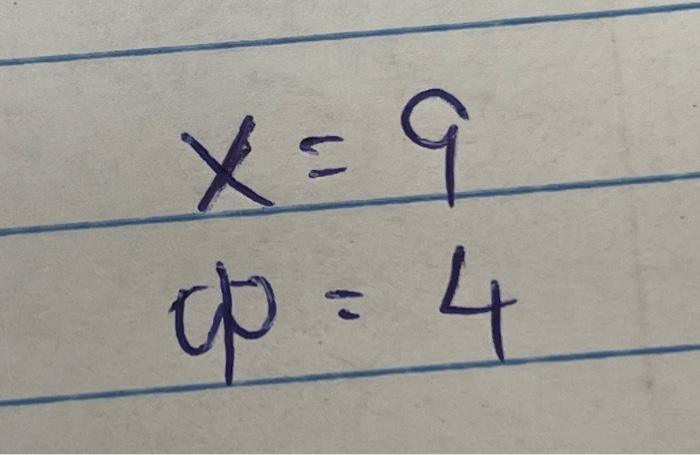 x = 9
φ = 4